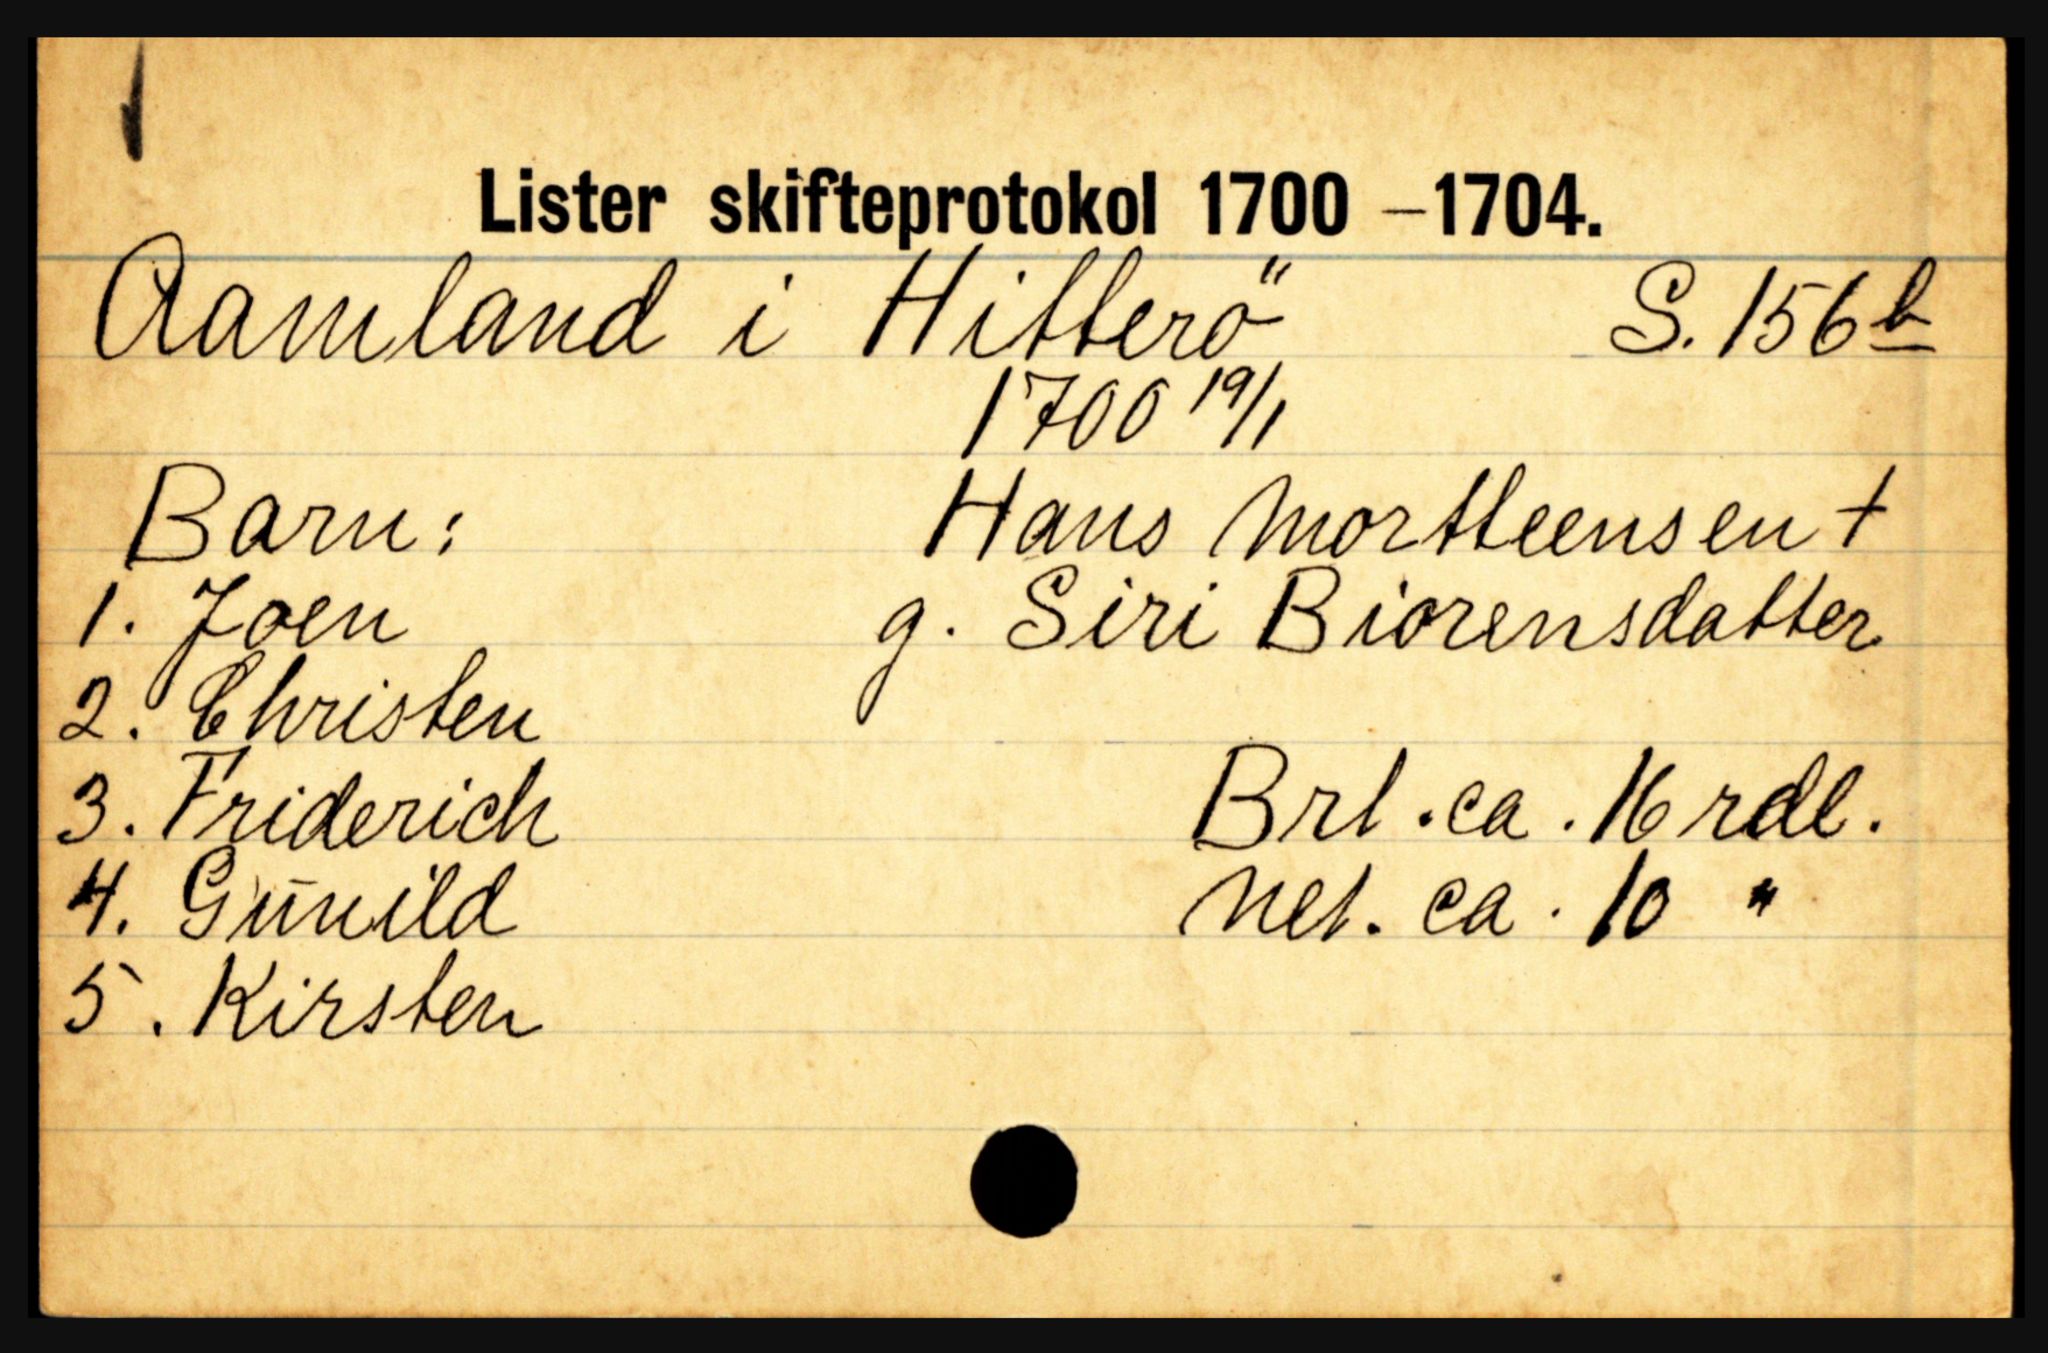 Lister skifteprotokol 1700 – 1704.
Aamland i Hitterö S. 156 b
1700 19/1
Barn: Hans Mortteensen +
1. Joen g. Siri Biorensdatter
2. Christen
3. Friderich Brt. ca. 16 rdl.
4. Gunild Net. ca. 10 "
5. Kirsten